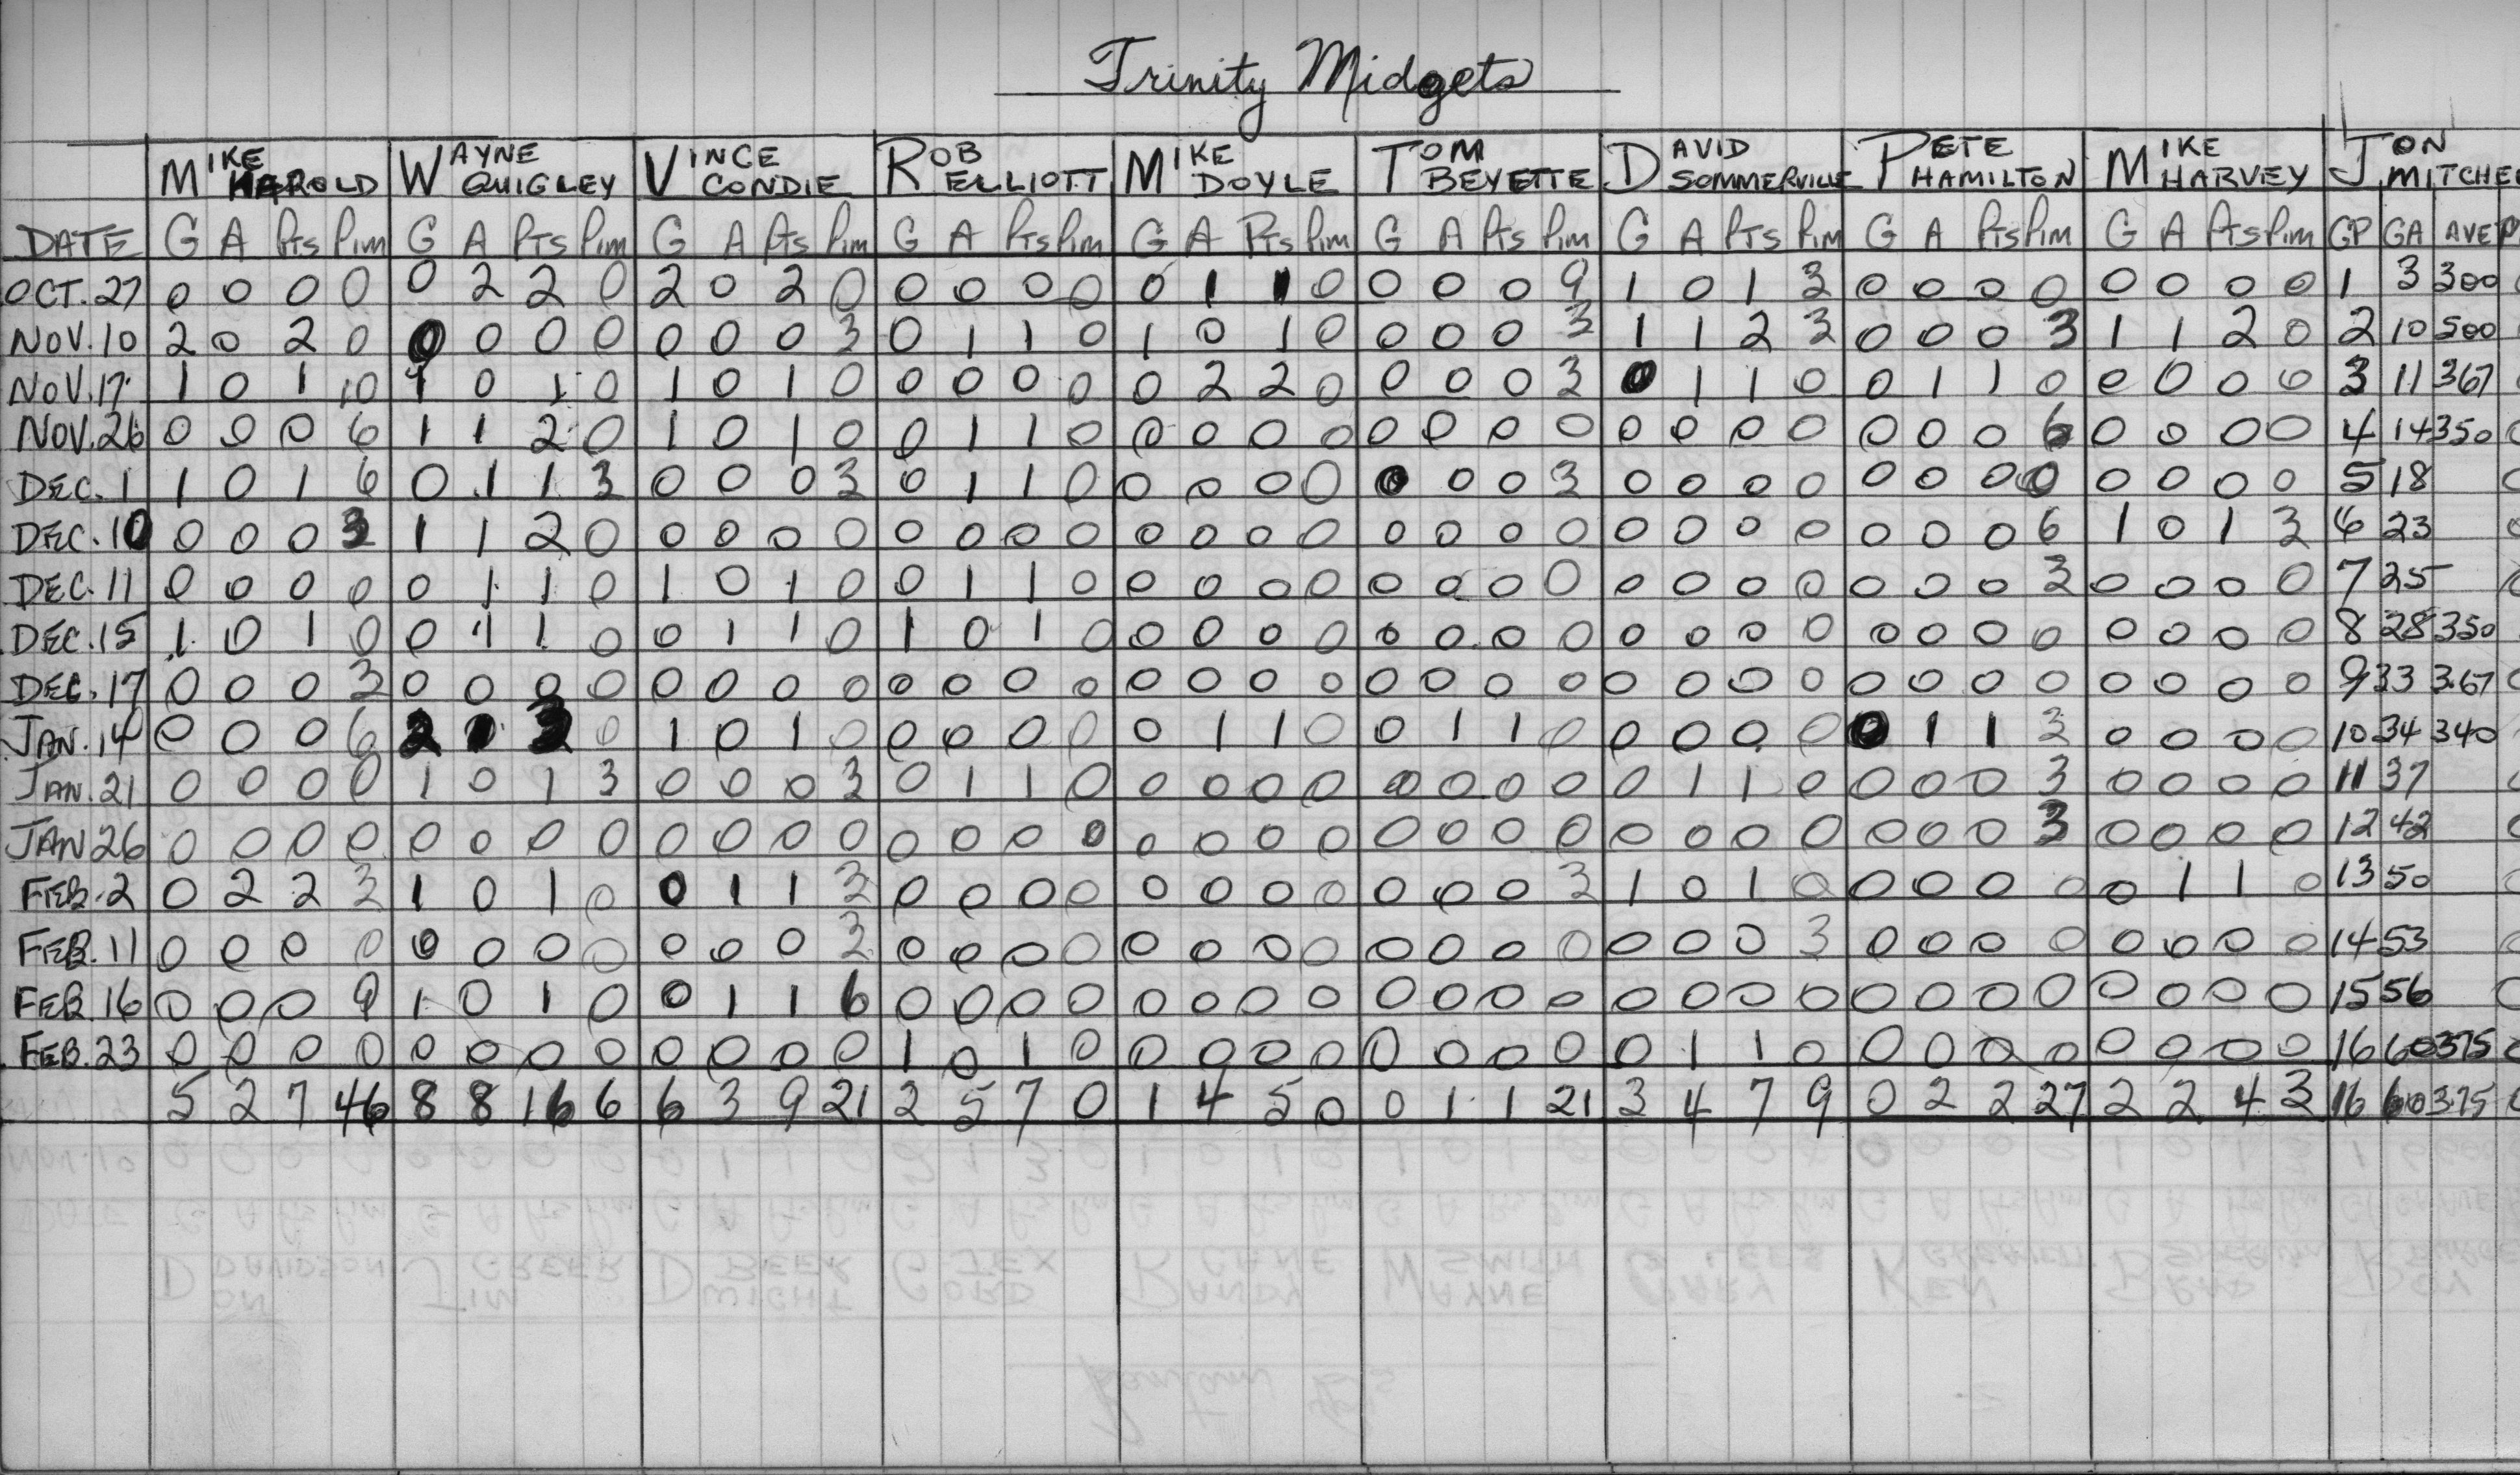 Trinity Midgets
MIKE HAROLD WAYNE QUIGLEY VINCE CONDIE ROB ELLIOTT MIKE DOYLE TOM BEYETTE DAVID SOMMERVILLE PETE HAMILTON MIKE HARVEY JON MITCHE
DATE G A Pts Pim G A Pts Pim G A Pts Pim G A Pts Pim G A Pts Pim G A Pts Pim G A Pts Pim G A Pts Pim G A Pts Pim GP GA AVE
OCT. 27 0 0 0 0 0 2 2 0 2 0 2 0 0 0 0 0 0 1 1 0 0 0 0 9 1 0 1 3 0 0 0 0 0 0 0 0 1 3 300
NOV. 10 2 0 2 0 0 0 0 0 0 0 0 3 0 1 1 0 1 0 1 0 0 0 0 3 1 1 2 3 0 0 0 3 1 1 2 0 2 10 500
NOV. 17 1 0 1 10 1 0 1 0 1 0 1 0 0 0 0 0 0 2 2 0 0 0 0 3 0 1 1 0 0 1 1 0 0 0 0 0 3 11 367
NOV. 26 0 0 0 6 1 1 2 0 1 0 1 0 0 1 1 0 0 0 0 0 0 0 0 0 0 0 0 0 0 0 0 6 0 0 0 0 4 14 350
DEC. 1 1 0 1 6 0 1 1 3 0 0 0 3 0 1 1 0 0 0 0 0 0 0 0 3 0 0 0 0 0 0 0 0 0 0 0 0 5 18
DEC. 10 0 0 0 3 1 1 2 0 0 0 0 0 0 0 0 0 0 0 0 0 0 0 0 0 0 0 0 0 0 0 0 6 1 0 1 3 6 23
DEC. 11 0 0 0 0 0 1 1 0 1 0 1 0 0 1 1 0 0 0 0 0 0 0 0 0 0 0 0 0 0 0 0 3 0 0 0 0 7 25
DEC. 15 1 0 1 0 0 1 1 0 0 1 1 0 1 0 1 0 0 0 0 0 0 0 0 0 0 0 0 0 0 0 0 0 0 0 0 0 8 28 350
DEC. 17 0 0 0 3 0 0 0 0 0 0 0 0 0 0 0 0 0 0 0 0 0 0 0 0 0 0 0 0 0 0 0 0 0 0 0 0 9 33 3.67
JAN. 14 0 0 0 6 2 1 3 0 1 0 1 0 0 0 0 0 0 1 1 0 0 1 1 0 0 0 0 0 0 1 1 3 0 0 0 0 10 34 340
JAN. 21 0 0 0 0 1 0 1 3 0 0 0 3 0 1 1 0 0 0 0 0 0 0 0 0 0 1 1 0 0 0 0 3 0 0 0 0 11 37
JAN 26 0 0 0 0 0 0 0 0 0 0 0 0 0 0 0 0 0 0 0 0 0 0 0 0 0 0 0 0 0 0 0 3 0 0 0 0 12 42
FEB. 2 0 2 2 3 1 0 1 0 0 1 1 3 0 0 0 0 0 0 0 0 0 0 0 3 1 0 1 0 0 0 0 0 0 1 1 0 13 50
FEB. 11 0 0 0 0 0 0 0 0 0 0 0 3 0 0 0 0 0 0 0 0 0 0 0 0 0 0 0 3 0 0 0 0 0 0 0 0 14 53
FEB. 16 0 0 0 9 1 0 1 0 0 1 1 6 0 0 0 0 0 0 0 0 0 0 0 0 0 0 0 0 0 0 0 0 0 0 0 0 15 56
FEB. 23 0 0 0 0 0 0 0 0 0 0 0 0 1 0 1 0 0 0 0 0 0 0 0 0 0 1 1 0 0 0 0 0 0 0 0 0 16 60 375
5 2 7 46 8 8 16 6 6 3 9 21 2 5 7 0 1 4 5 0 0 1 1 21 3 4 7 9 0 2 2 27 2 2 4 3 16 60 375